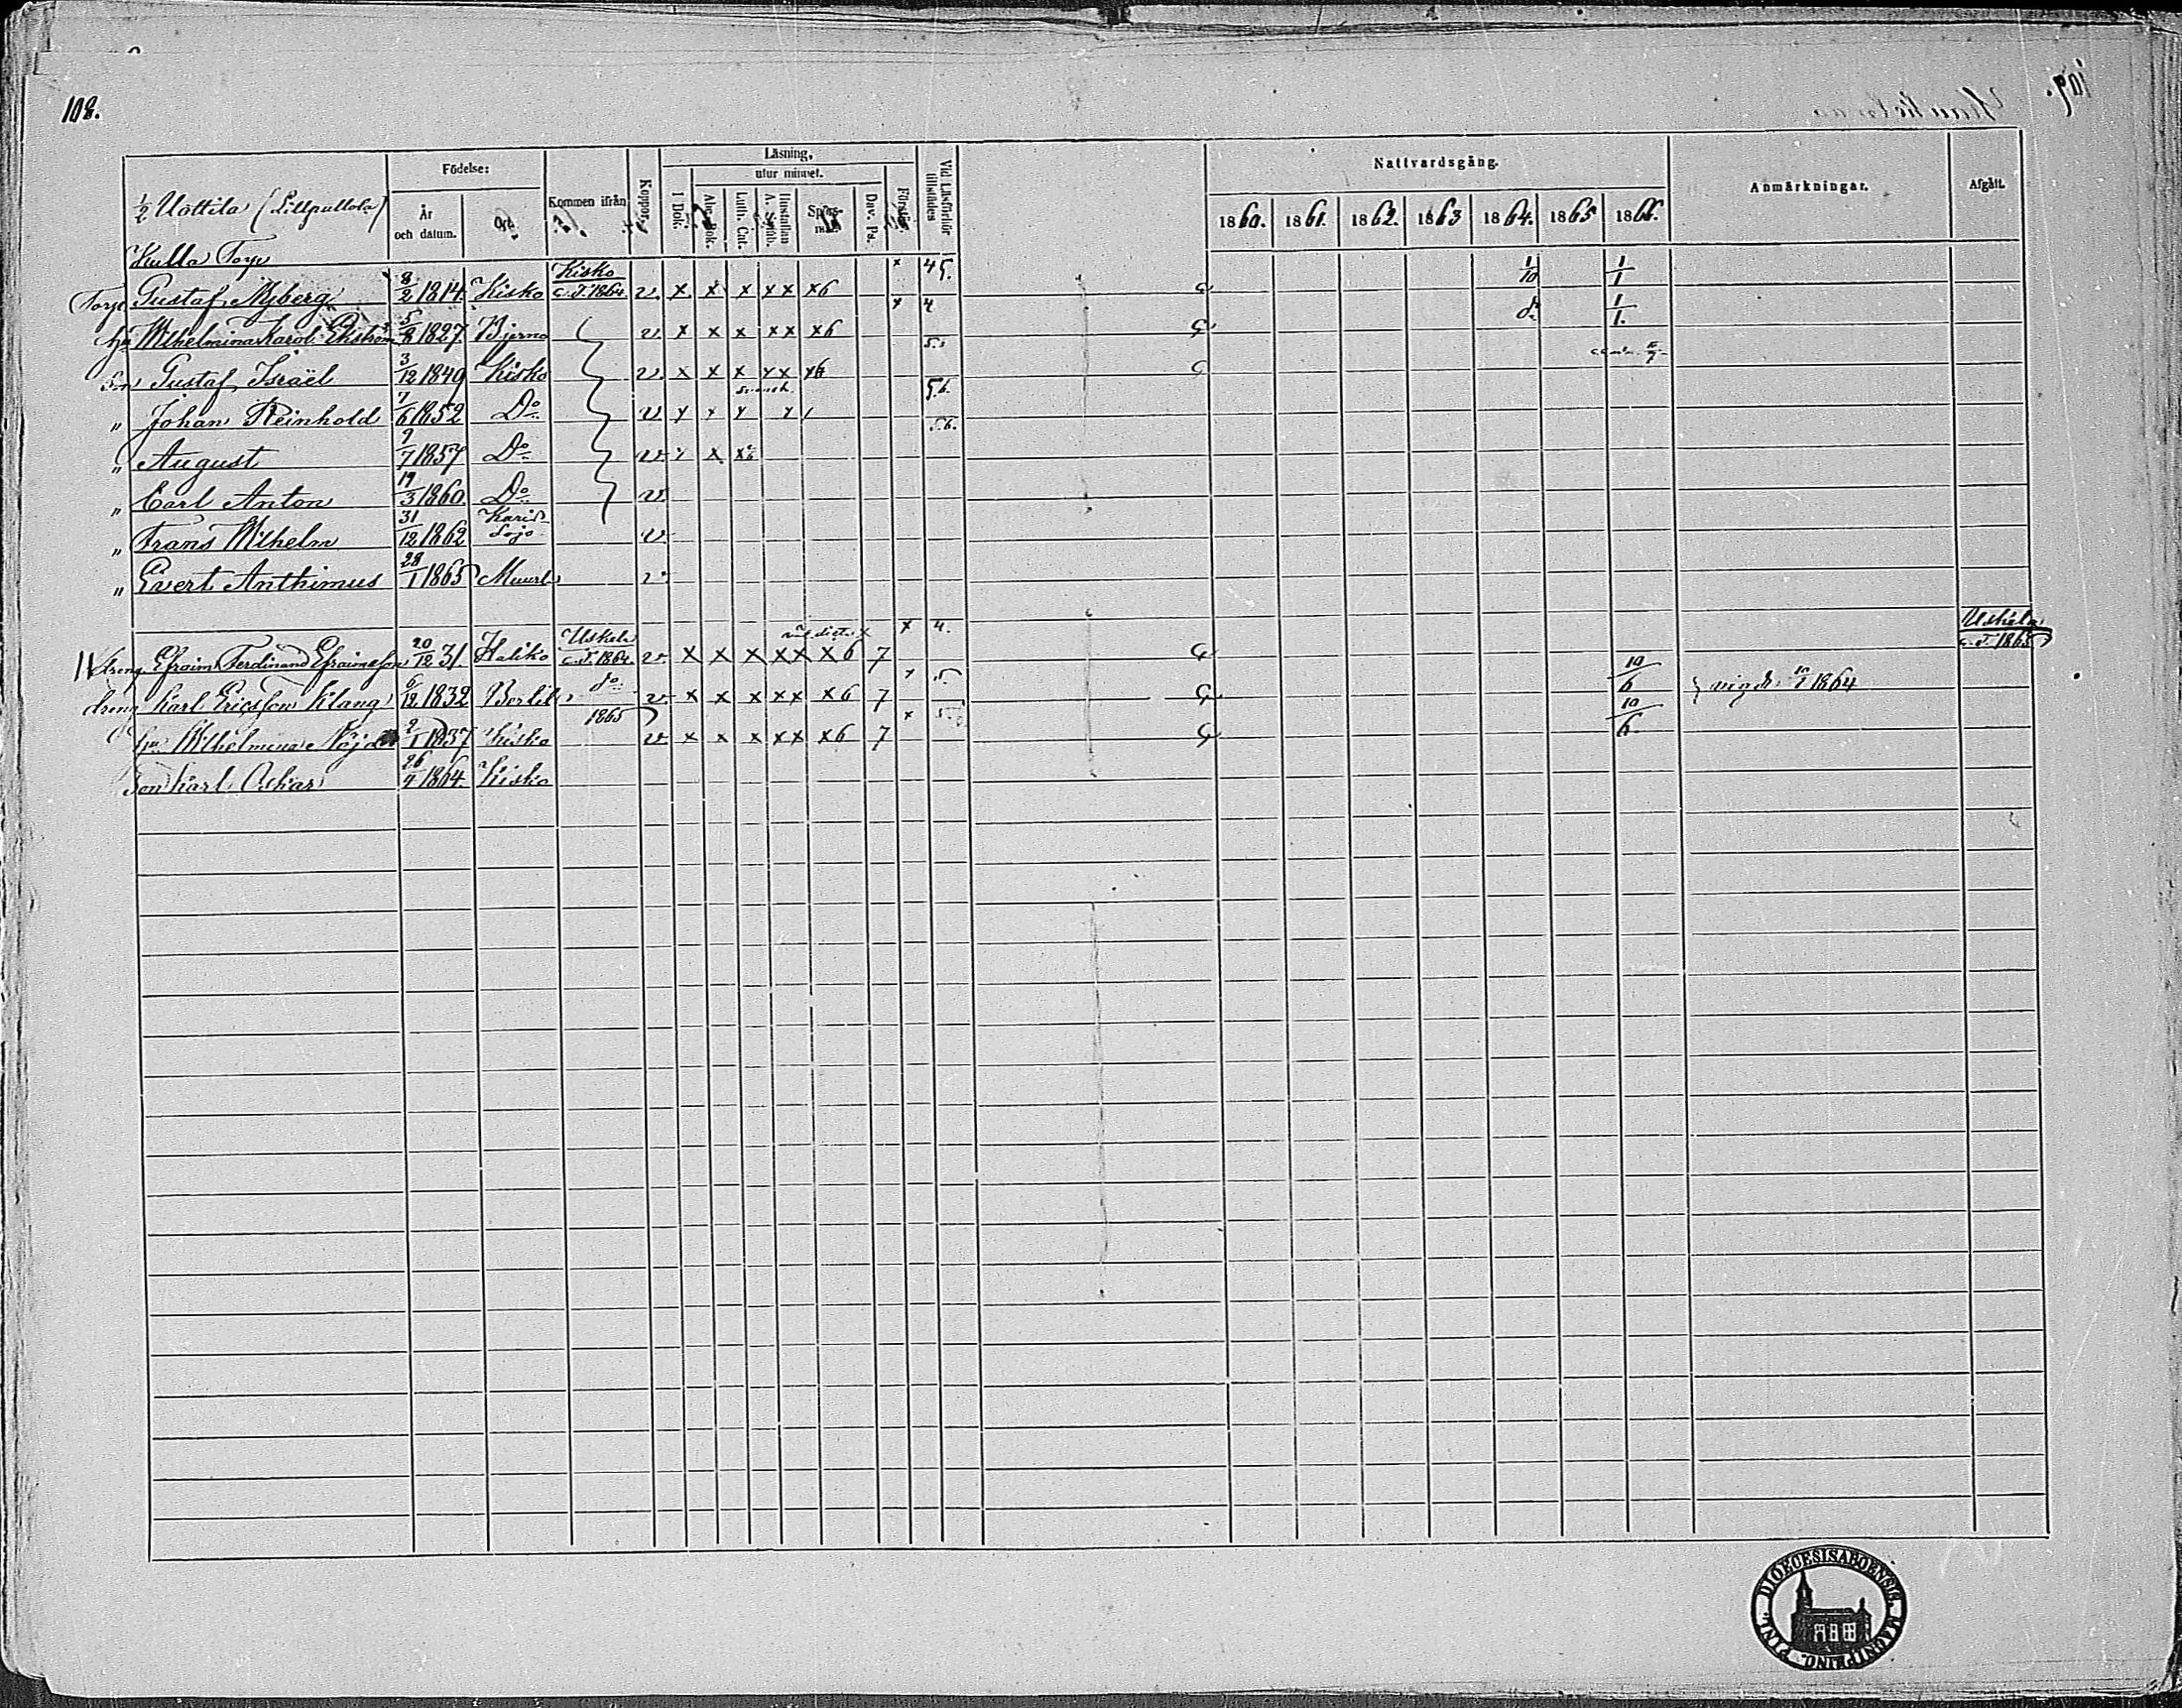 108.
Födelse:
Läsning,
utur minnet.
Nattvardsgång.
Anmärkningar.
Afgått.
½ Uottila (Lillpullola)
År och datum.
Ort.
Kommen ifrån
Koppor.
I Bok.
Abc-Bok.
Luth. Cat.
Hustaflan
A. Symb.
Spörs-mål.
Dav. Ps.
Förstår.
Vid Läsförhör tillstädes
1860. 1861. 1862. 1863 1864. 1865 1866.
Kulla Torp
Torp. Gustaf Nyberg 8/2 1814. Kisko Kisko c. T. 1864. v. x x x x x x6 x 45. 1/10 1/1
Wilhelmina Karol. Ekström 1827. Bjerno v. x x x x x x6 x 4 do 1/1.
Son Gustaf Israël 3/12 1849 Kisko v. x x x x x x6 5.
" Johan Reinhold 7/6 1852 Do v x x x x 5.6.
" August 9/7 1857 Do v x x x 5.6.
" Carl Anton 19/3 1860. Do v.
" Frans Wilhelm 31/12 1862 Karis Lojo v.
" Evert Anthimus 28/1 1865 Muurla v.
dreng Efraim Ferdinand Efraimsson 20/12 31. Haliko Uskela c. T. 1864. v. x x x x x x 6 7 x 4. Uskela c. T. 1865
dreng Karl Ericsson Klang 6/12 1832 Bertil do 1865 v. x x x x x x 6 7 x 5. 10/6 vigde 1864
hu Wilhelmina 2/1 1837 Kisko v x x x x x x 6 7 x 5. 10/6.
Son Karl Oskar 26/4 1864. Kisko
DIOECESIS ABOENSIS. MAGNI PRINC. FINL.